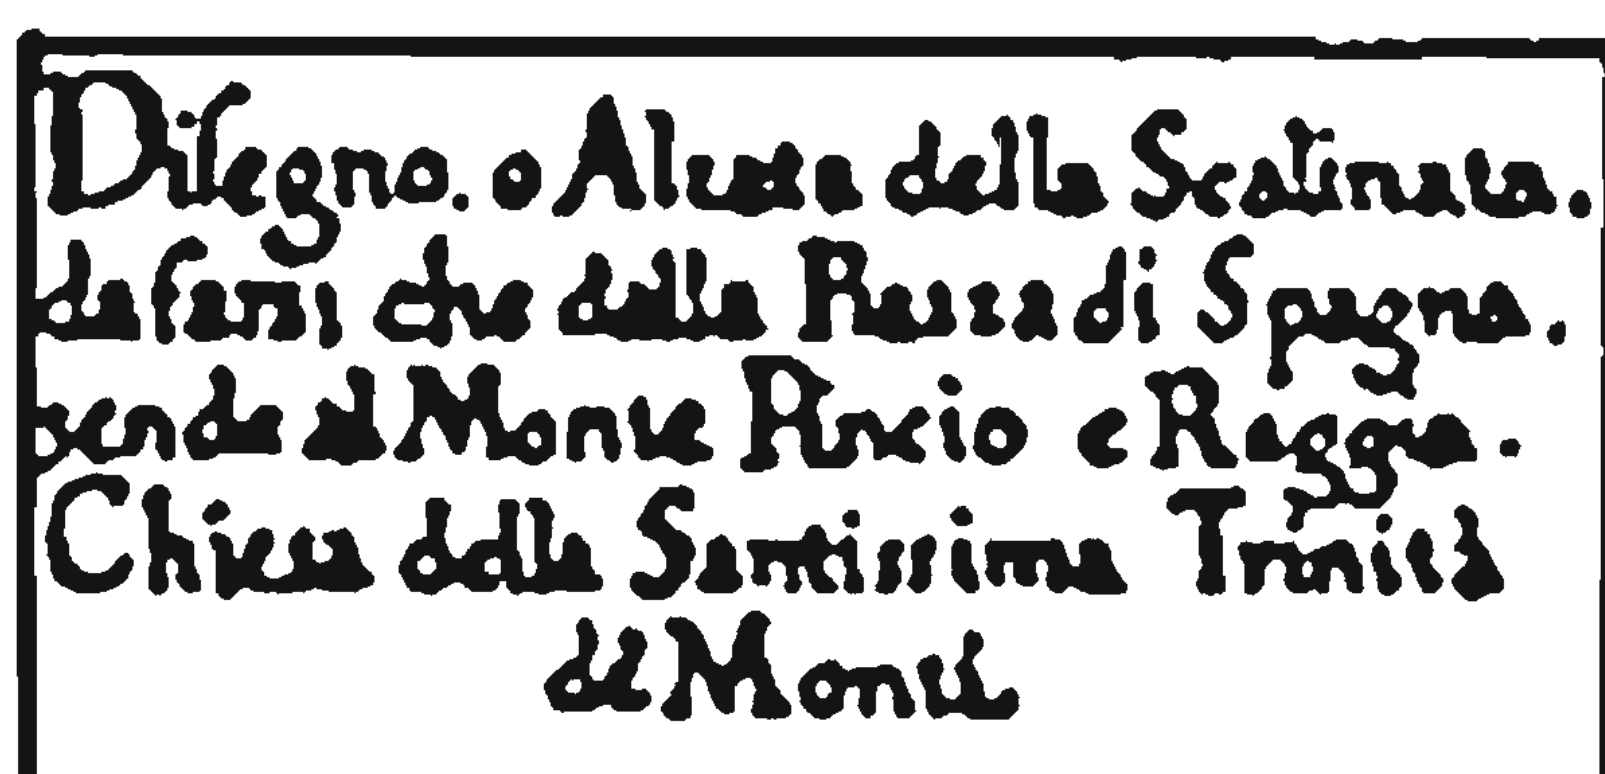 Disegno. o Alzata della Scalinata.
da farsi che dalla Piazza di Spagna.
cende al Monte Pincio e Reggia.
Chiesa della Santissima Trinità
de Monti